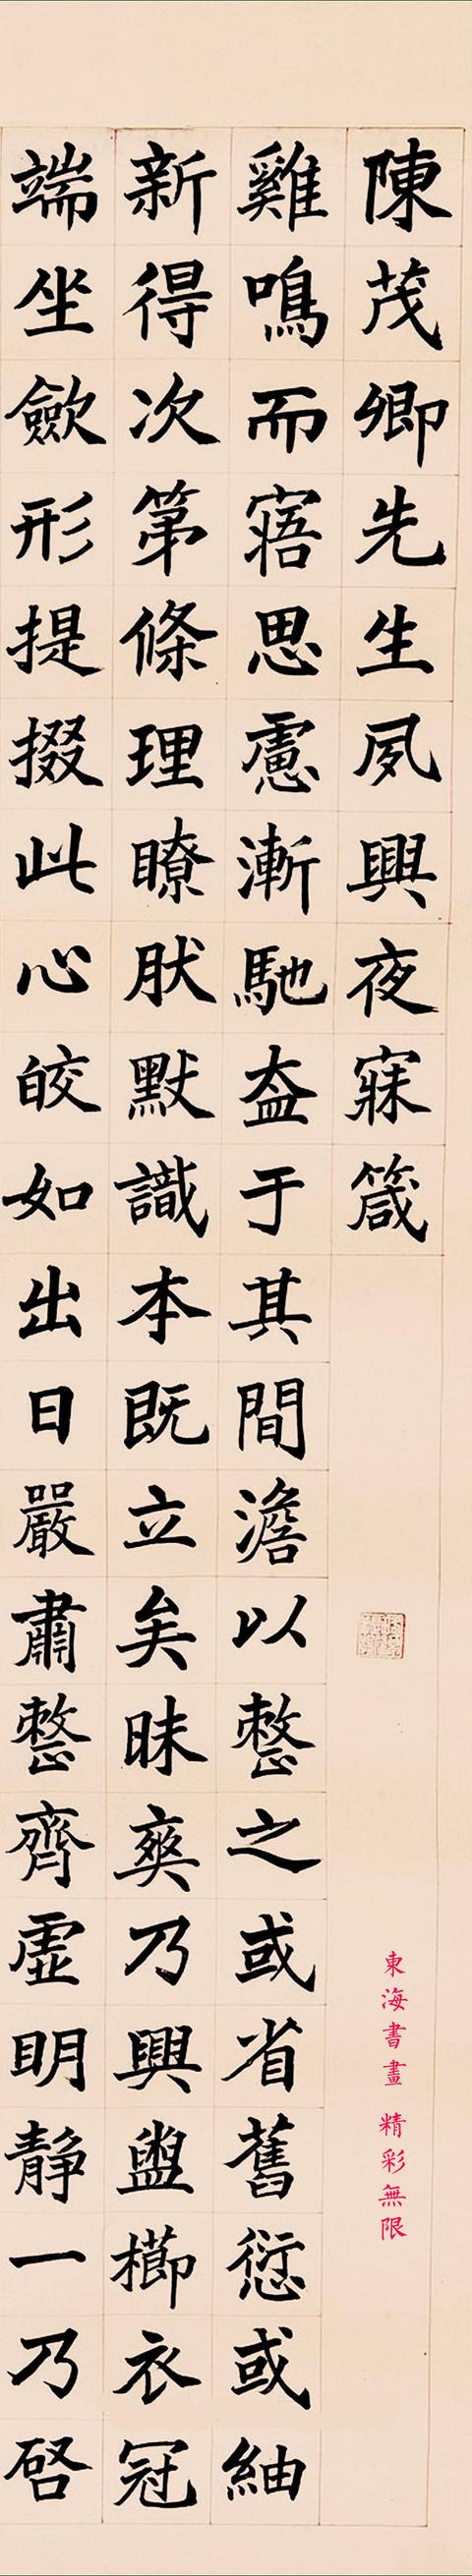 陳茂卿先生夙興夜寐箴
雞鳴而寤思慮漸馳盍于其間澹以整之或省舊愆或紬
新得次第條理瞭肰默識本既立矣昧爽乃興盥櫛衣冠
端坐斂形提掇此心皎如出日嚴肅整齊虛明静一乃啓
東海書畫 精彩無限